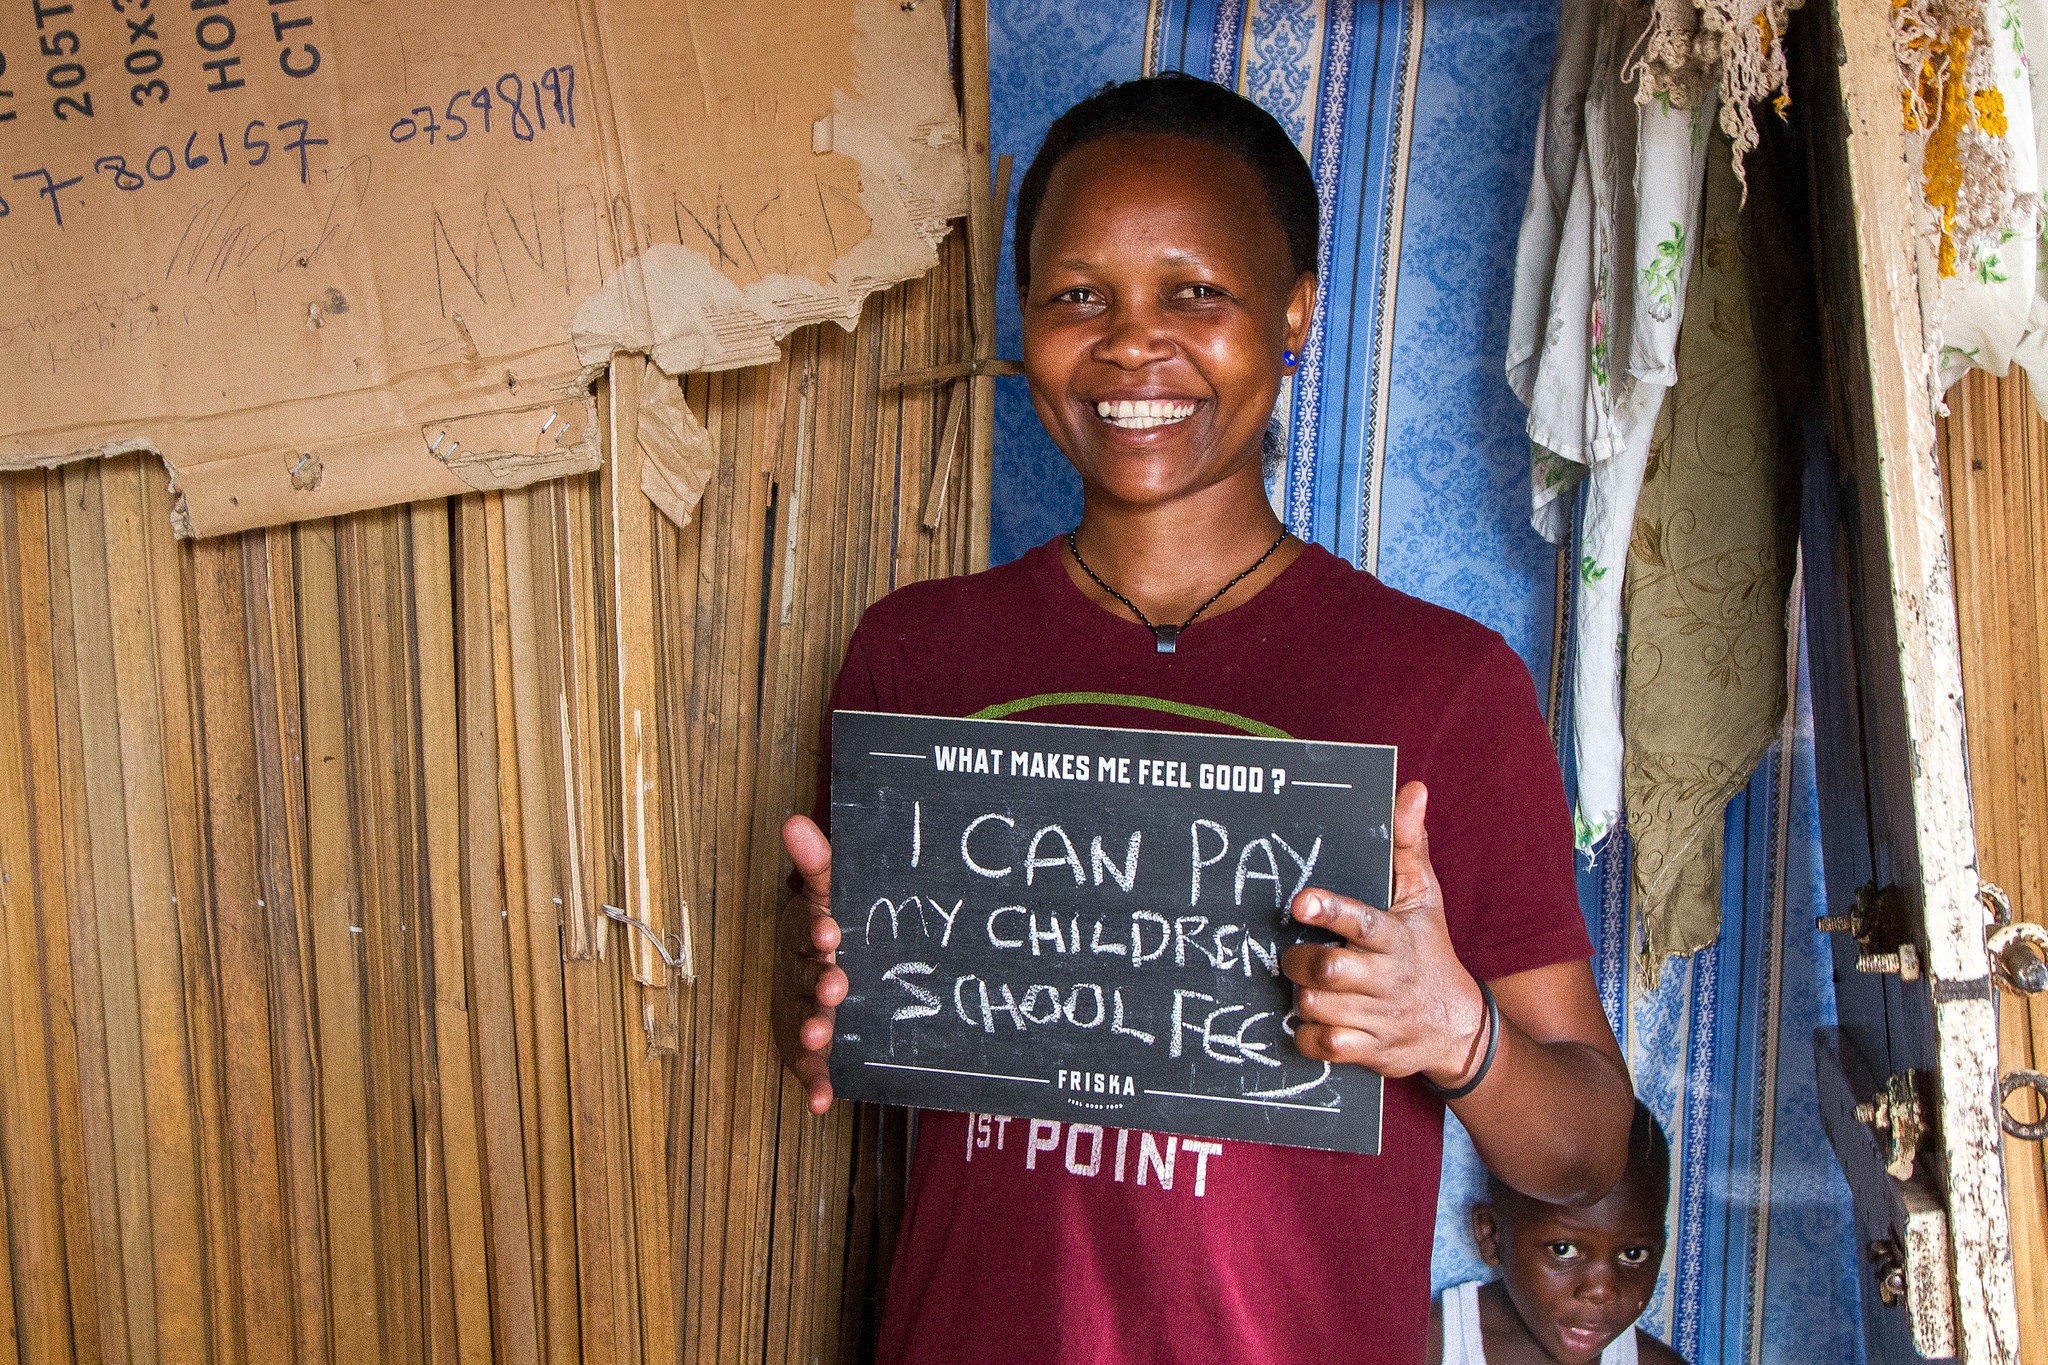 205T
30x3
HOM
CTN
7.806157
07598197
WHAT MAKES ME FEEL GOOD ?
I CAN PAY
MY CHILDREN
SCHOOL FEES
FRISKA
FEEL GOOD FOOD
1ST POINT